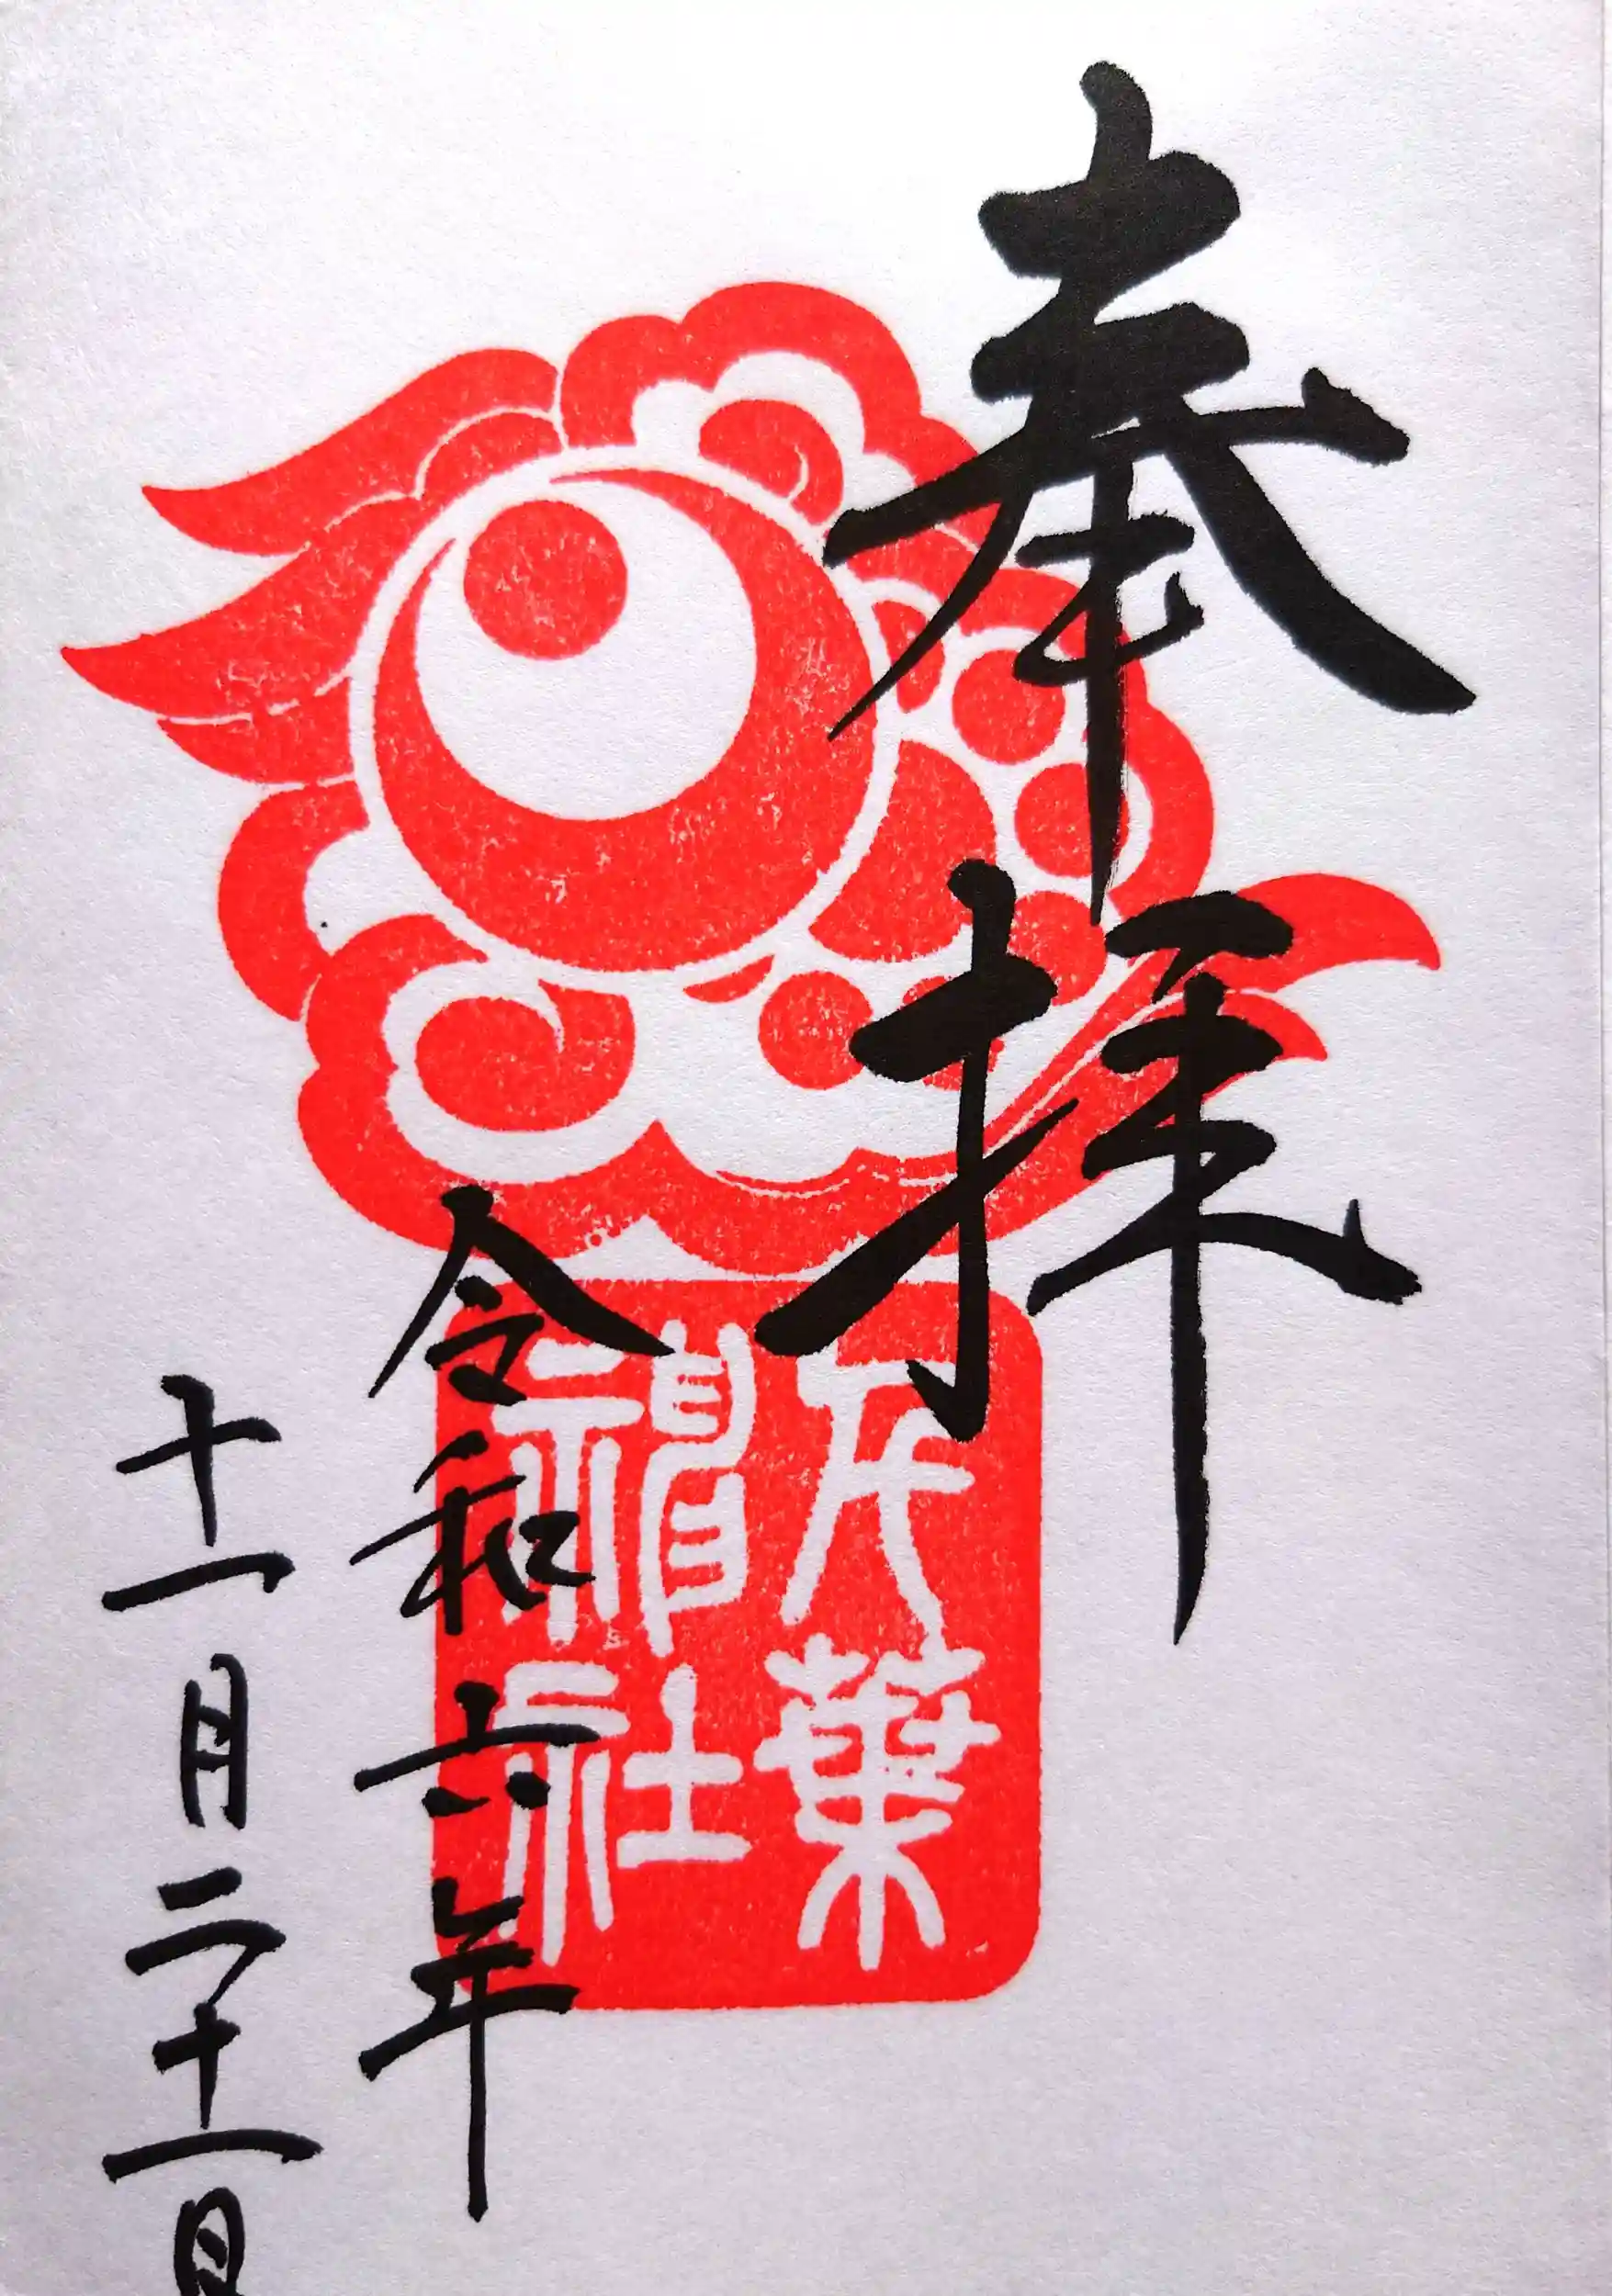 奉拝
葉
神社
令和六年
十一月二十一日